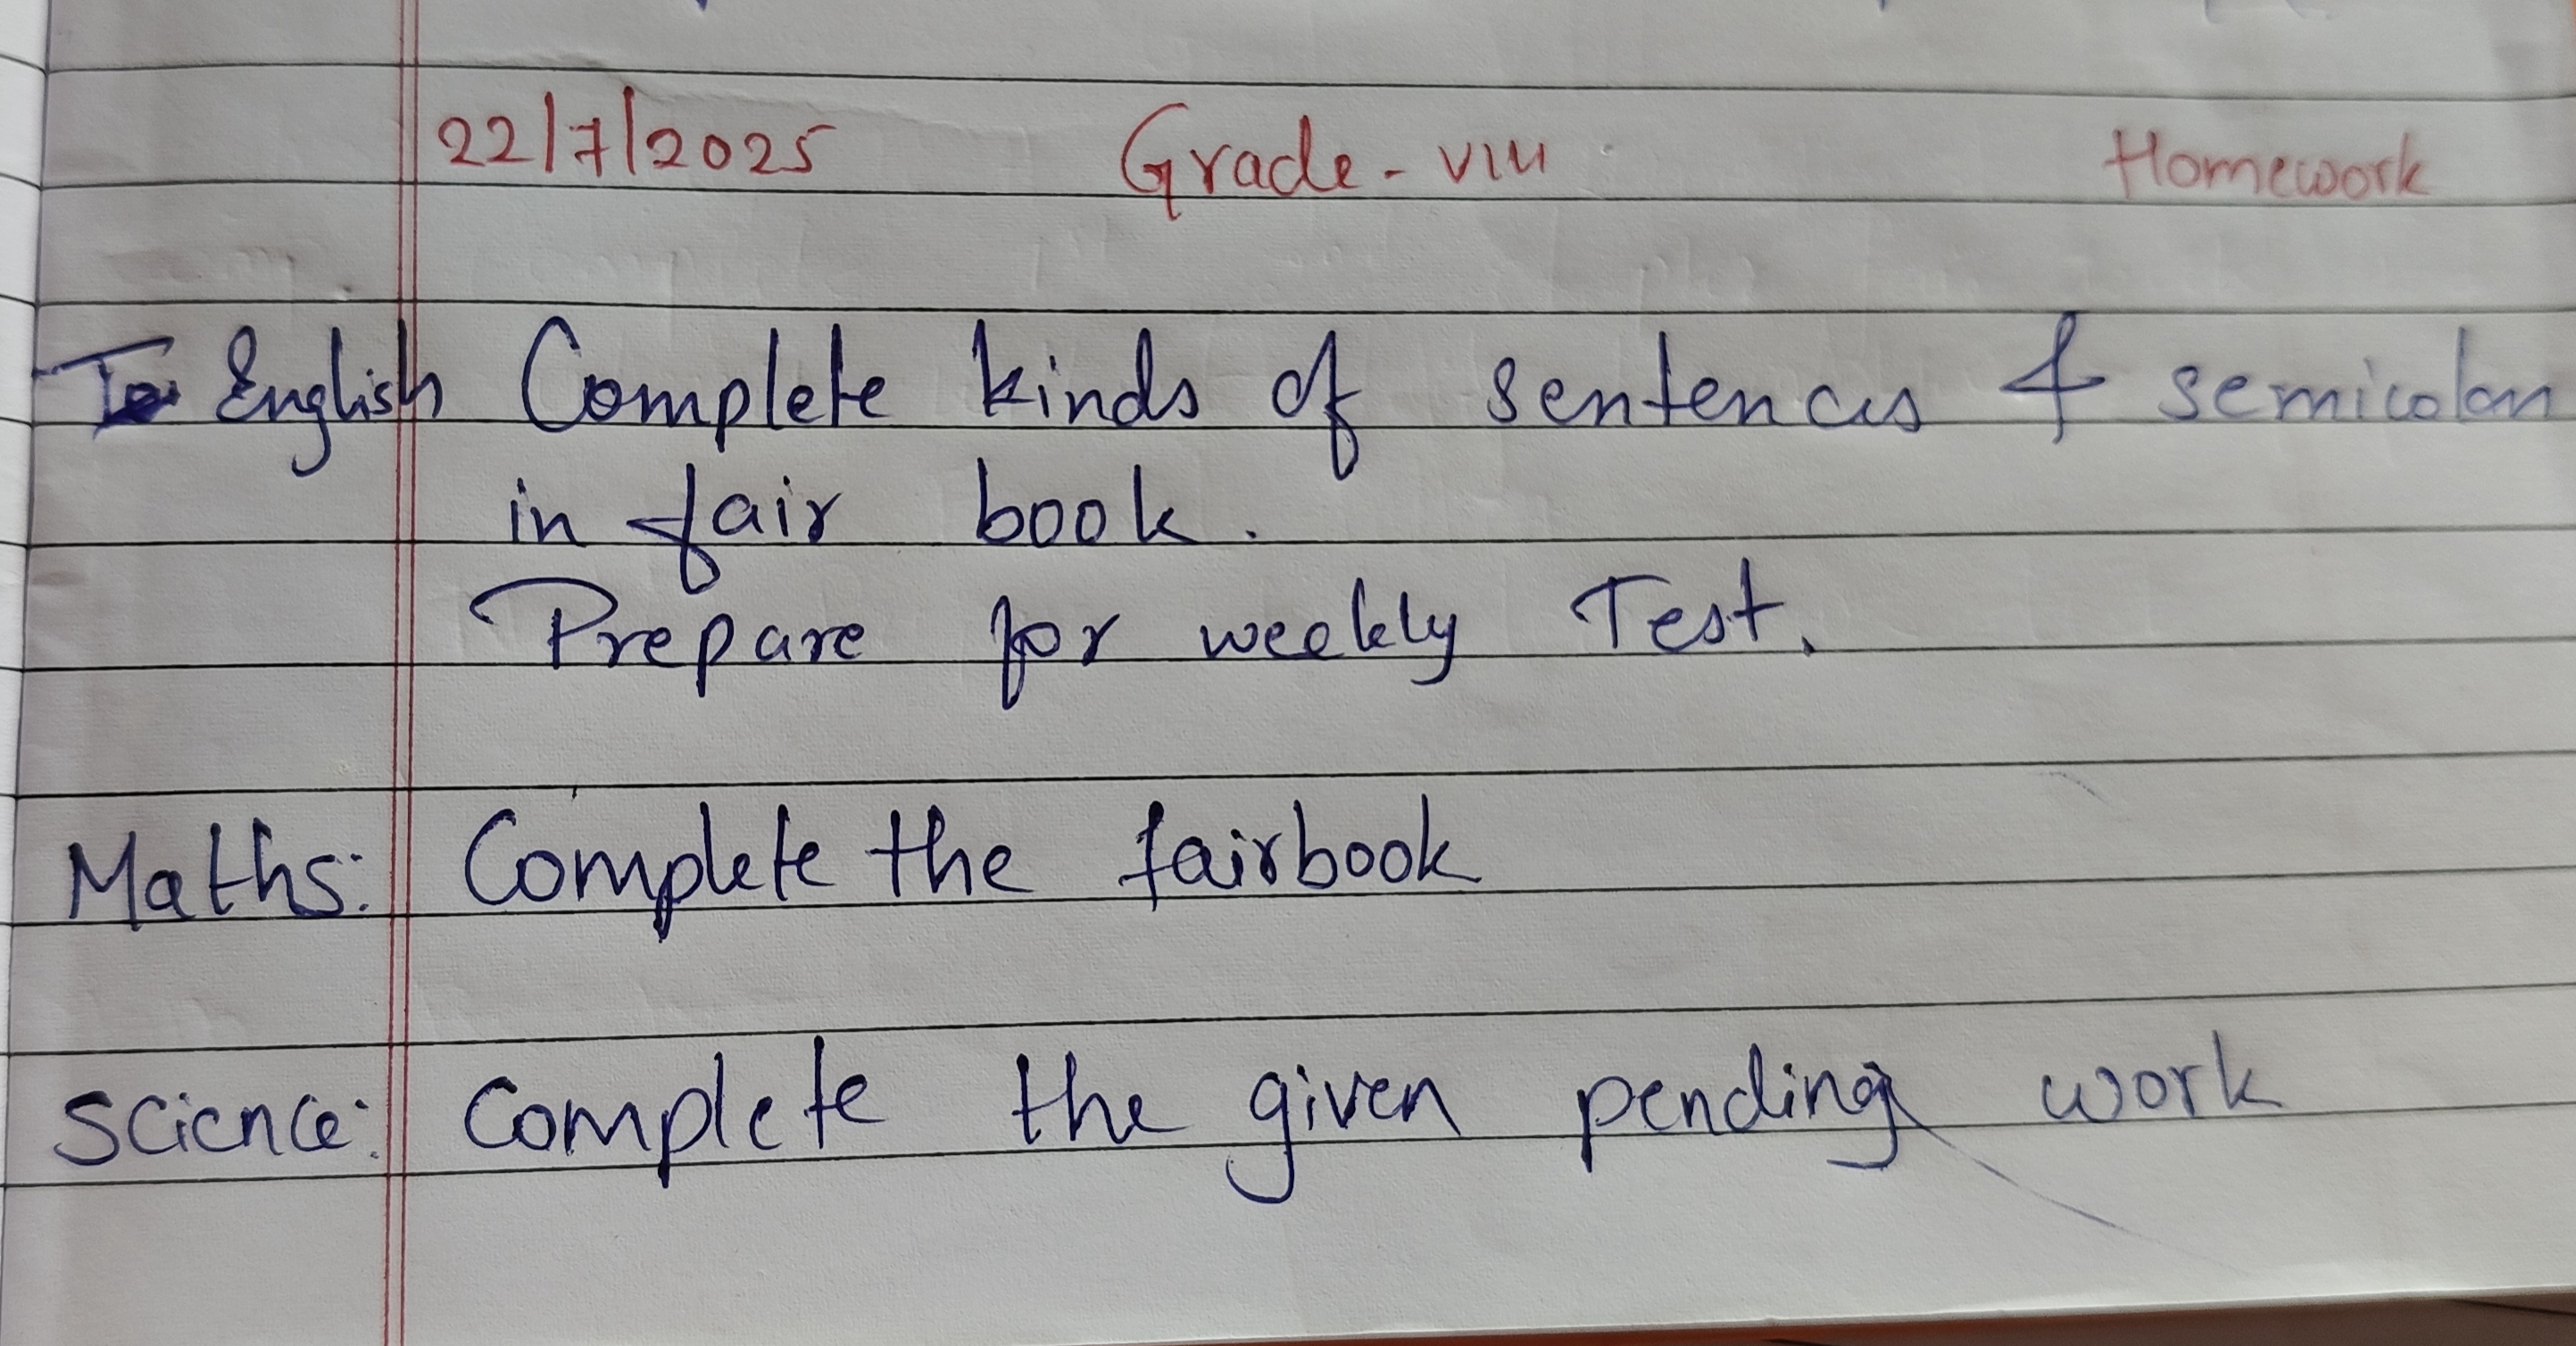 22/7/2025 Grade-VIII Homework
English Complete kinds of sentences & semicolon
in fair book.
Prepare for weekly Test.
Maths: Complete the fairbook
Science: Complete the given pending work